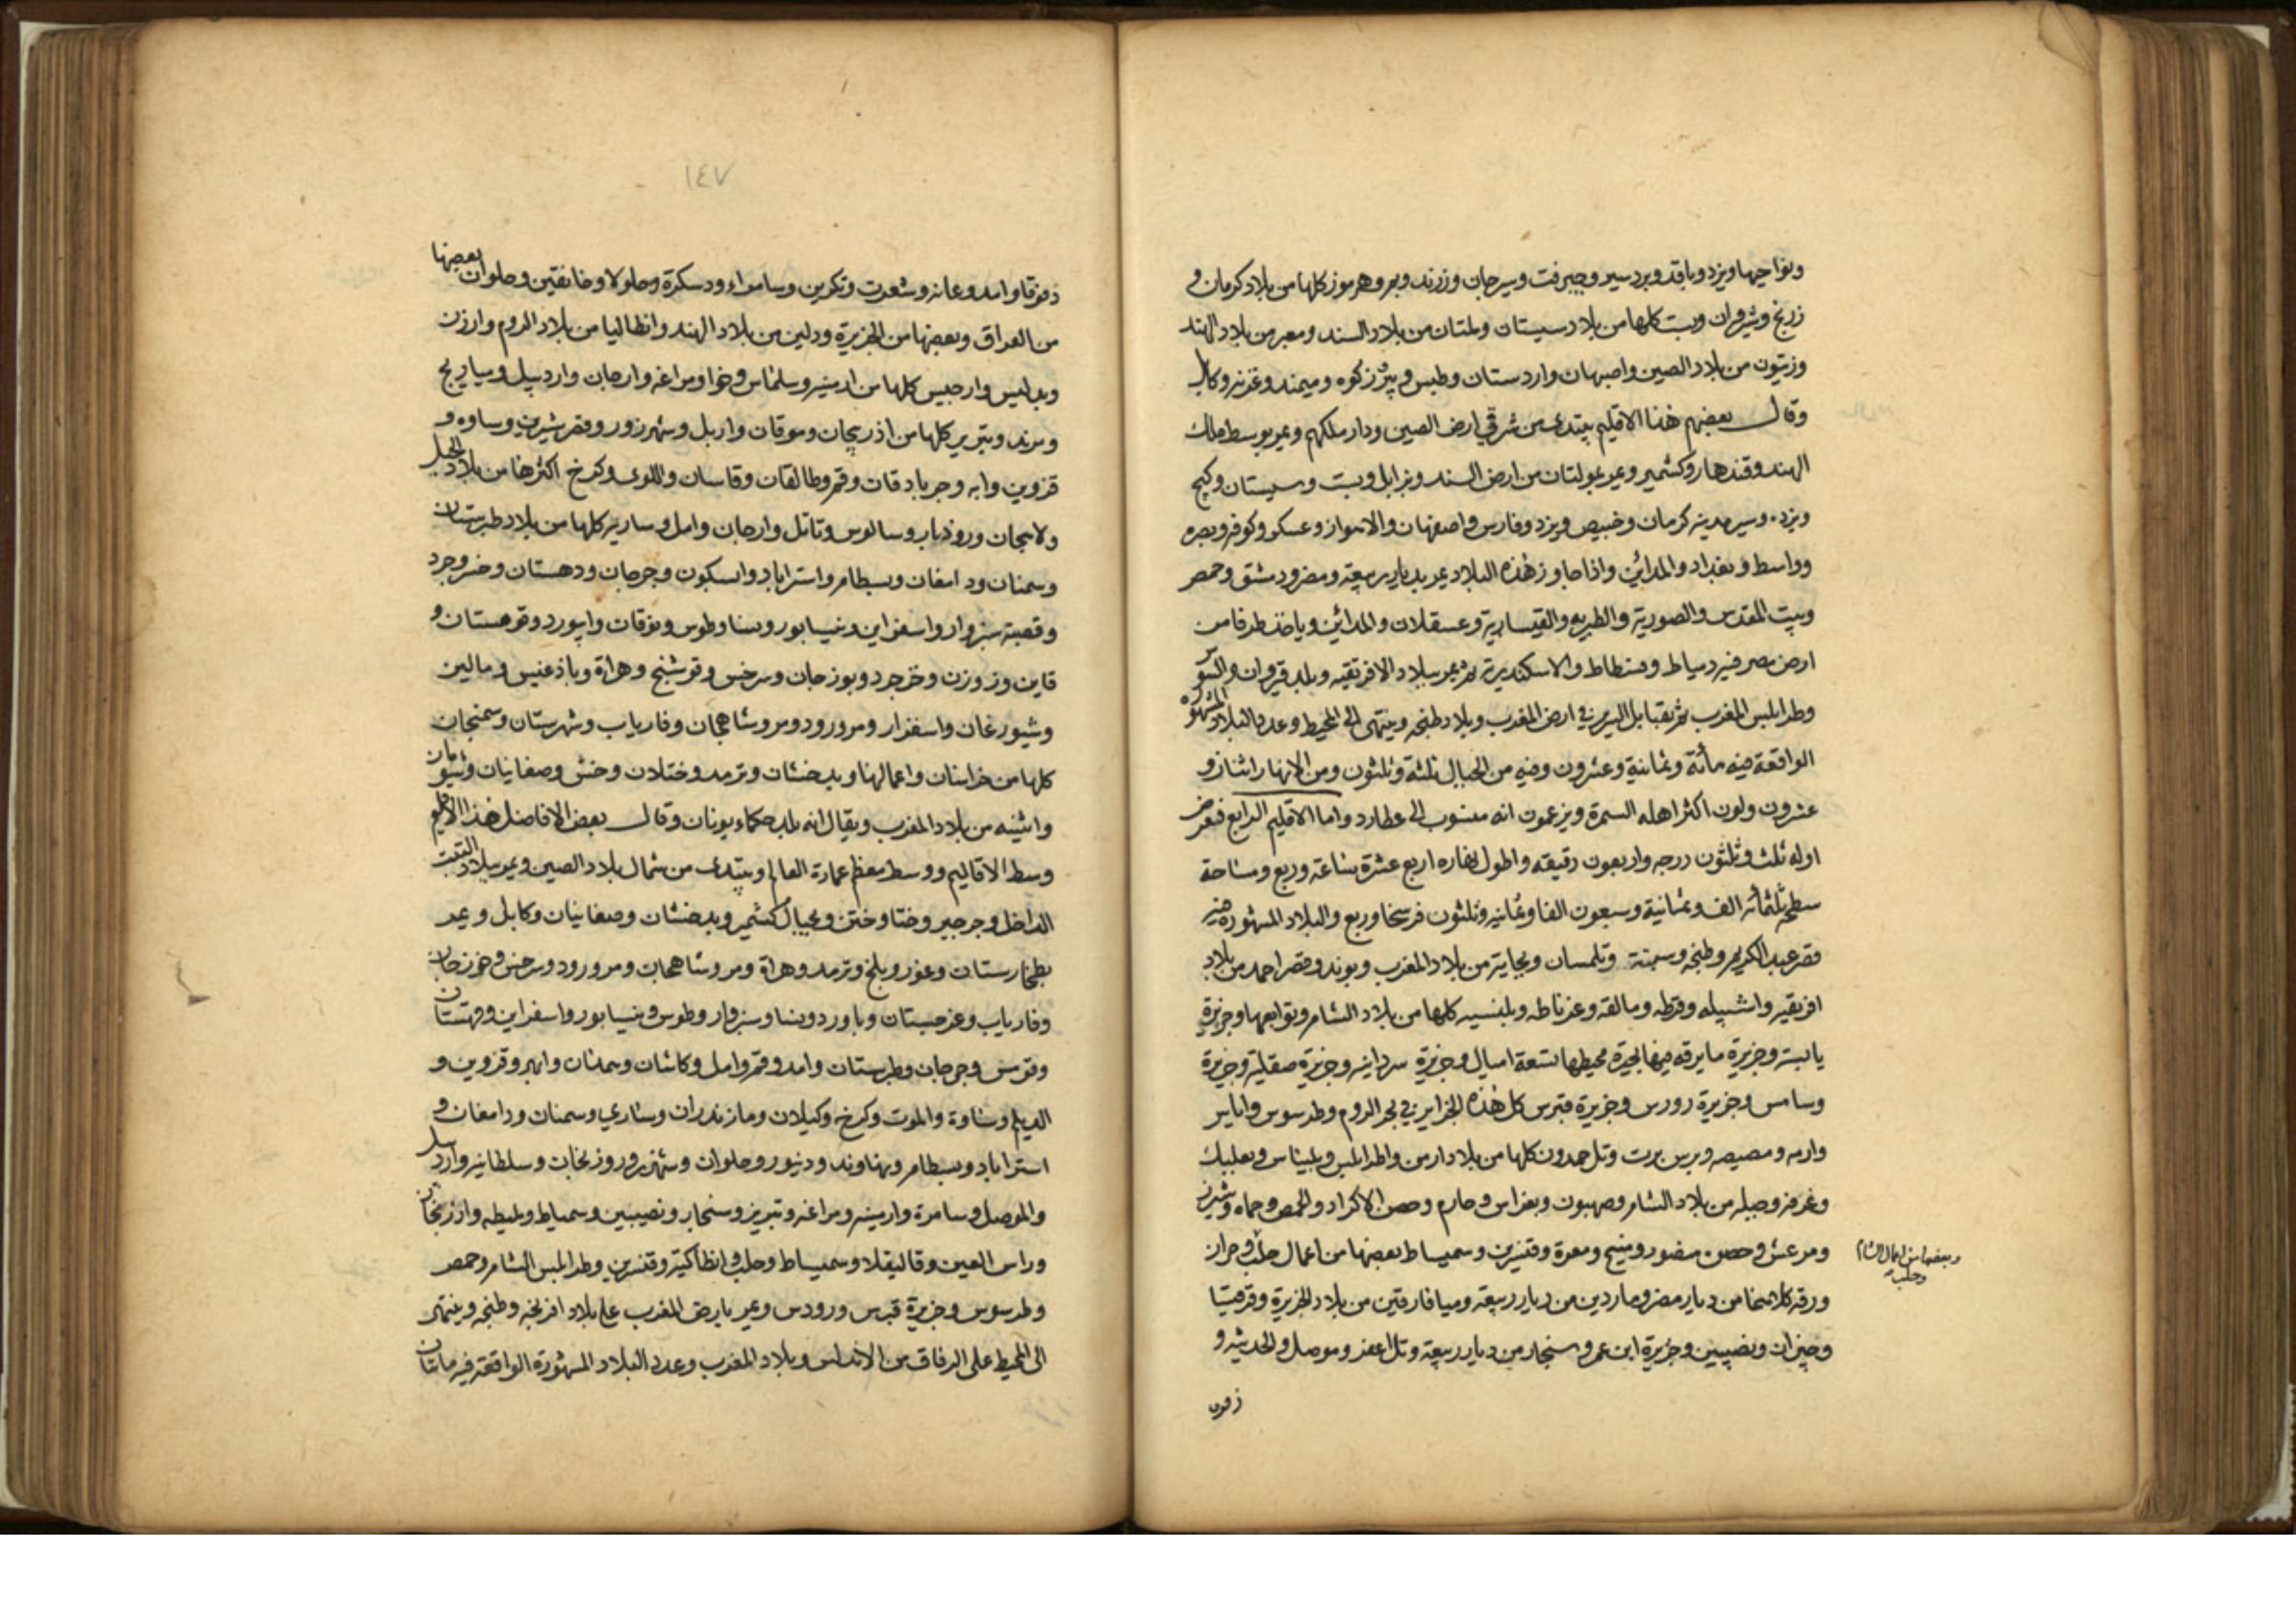 ونواحيها ويزد وبافد وبردسير وجيرفت وسيرجان وزرند وبم وهرموز كلها من بلاد كرمان و
زرنج وشروان وبست كلها من بلاد سيستان وملتان من بلاد السند ومعبر من بلاد الهند
وزيتون من بلاد الصين واصبهان واردستان وطبس و كوه وميمند وغزنه وكابل
وقال بعضهم هذا الاقليم يبتدئ من شرقي ارض الصين ودار ملكهم ويمر بوسط ملك
الهند وقندهار وكشمير ويمر بمولتان من ارض السند وبزابل وبست وسيستان وكيج
ويزد وسير مدينه كرمان وخبيص ويزد وفارس واصفهان والاهواز وعسكر وكوفه وبصره
وواسط وبغداد والمدائن واذا جاوز هذه البلاد يمر بديار ربيعة ومضر ودمشق وحمص
وبيت المقدس والصورية والطبريه والقيسارية وعسقلان والمدائن وياخذ طرفا من
ارض مصر فيه دمياط وفسطاط والاسكندرية ثم يمر ببلاد الافريقيه وبلد قيروان والسوس
وطرابلس المغرب ثم بقبايل البربر في ارض المغرب وبلاد طنجه وينتهي الى المحيط وعدد البلاد المشهوره
الواقعة فيه مأئة وثمانية وعشرون وفيه من الجبال ثلثة وثلثون ومن الانهار اثنان و
عشرون ولون اكثر اهله السمرة ويزعمون انه منسوب الى عطارد واما الاقليم الرابع فعرض
اوله ثلث وثلثون درجه واربعون دقيقه واطول نهاره اربع عشرة ساعة وربع ومساحة
سطحه ثلثمائه الف وثمانية وسبعون الفا وثمانيه وثلثون فرسخا وربع والبلاد المشهوره فيه
قصر عبد الكريم وطنجه وسبتة وتلمسان وبجاية من بلاد المغرب وبونه وقصر احمد من بلاد
افريقيه واشبيله وقرطبه ومالقه وغرناطه وبلنسيه كلها من بلاد الشام وتوابعها وجزيرة
يابسة وجزيرة مايرقه فيها بحيرة محيطها تسعة اميال وجزيرة سردانيه وجزيرة صقلية وجزيرة
وسامس وجزيرة رودس وجزيرة قبرس كل هذه الجزاير في بحر الروم وطرسوس واياس
وادنه ومصيصه وبرس برت وتل حمدون كلها من بلاد ارمن واطرابلس وبليناس وبعلبك
وعرفه وجبله من بلاد الشام وصهيون وبغراس وحارم وحصن الاكراد والحمص وحماه وشيزر
ومرعش وحصن منصور ومنبج ومعرة وقنسرين وسميساط بعضها من اعمال حلب وحران
وبعضها من اعمال الشام
وحلب
ورقه كلاهما من ديار مضر وماردين من ديار ربيعه وميافارقين من بلاد الجزيرة وقرقيسيا
وحيزان ونصيبين وجزيرة ابن عمر وسنجار من ديار ربيعة وتل اعفر وموصل والحديثه و
١٤٧
دقوقا وامد وعانه وتكريت وسامراء ودسكرة وجلولا وخانقين وحلوان بعضها
من العراق وبعضها من الجزيرة ودلين من بلاد الهند وانطاليا من بلاد الروم وارزن
وبدليس وارجيس كلها من ارمنيه وسلماس وخوا ومراغه وارجان واردبيل وميانج
ومرند وتبريز كلها من اذربيجان وموقان واربل وشهرزور وقصر شيرين وساوه و
قزوين وابه وجربادقان وقم وطالقان وقاسان واللوى وكرخ اكثرها من بلاد الجبل
ولاهجان وروذبار وسالوس وناتل وارجان وامل وساريه كلها من بلاد طبرستان
وسمنان ودامغان وبسطام واستراباد وابسكون وجرجان ودهستان وخسروجرد
وقصبة سبزوار واسفراين ونيسابور ونسا وطوس ونوقان وابيورد وقوهستان و
قاين وزوزن وخرجرد وبوزجان وسرخس وفوشنج وهراة وباذغيس ومالين
وشبورغان واسفزار ومرورود ومروشاهجان وفارياب وشهرستان وسمنجان
كلها من خراسان واعمالها وبدخشان وترمد وختلان وخش وصغانيان وشومان
واثينه من بلاد المغرب ويقال انه بلد حكماء يونان وقال بعض الافاضل هذا الاقليم
وسط الاقاليم ووسط معظم عمارة العالم ويبتدئ من شمال بلاد الصين ويمر ببلاد التبت
الداخل وجرجير وختا وختن وبجبال كشمير وبدخشان وصغانيان وكابل ويمر
بطخارستان وغور وبلخ وترمد وهراة ومروشاهجان ومرورود وسرخس وجوزجان
وفارياب وغرجستان وباورد ونسا وسبزوار وطوس ونيسابور واسفراين وقهستان
وقومس وجرجان وطبرستان وامد وقم وامل وكاشان وهمدان وابهر وقزوين و
الديلم وساوة والموت وكرخ وكيلان ومازندران وساري وسمنان ودامغان و
استراباد وبسطام ونهاوند ودينور وحلوان وشهرزور وزنجان وسلطانيه واردبيل
والموصل وسامرة وارمينيه ومراغه وتبريز وسنجار ونصيبين وسمياط وملطيه وارزنجان
وراس العين وقاليقلا وسميساط وحلب وانطاكية وقنسرين وطرابلس الشام وحمص
وطرسوس وجزيرة قبرس ورودس ويمر بارض المغرب على بلاد افرنجه وطنجه وينتهي
الى المحيط على الزقاق من الاندلس وبلاد المغرب وعدد البلاد المشهورة الواقعة فيه مائتان